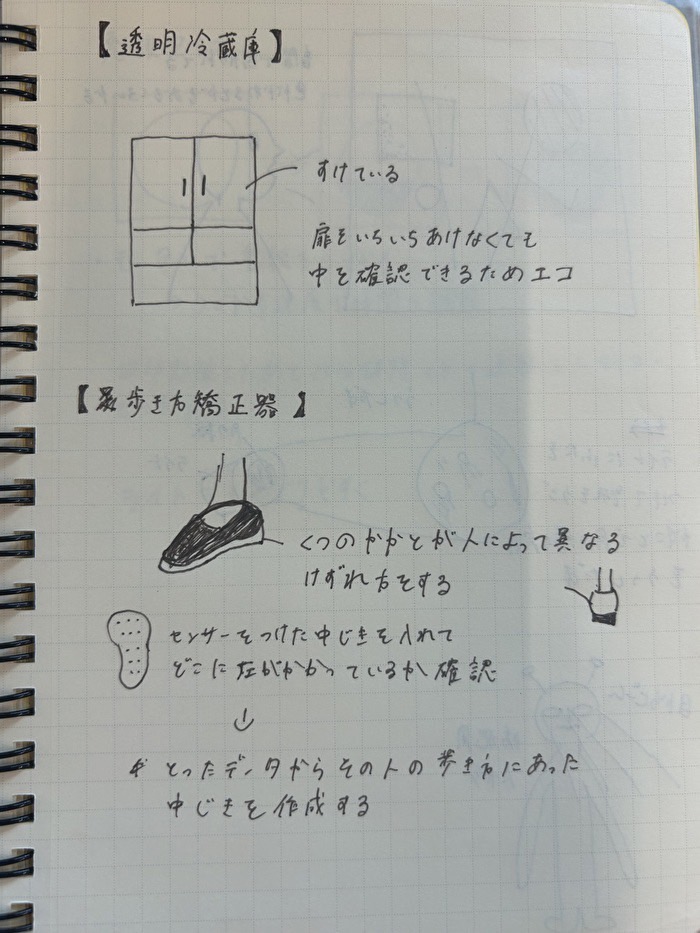 【透明冷蔵庫】
すけている
扉をいちいちあけなくても
中を確認できるためエコ
【歩き方矯正器】
くつのかかとが人によって異なる
けずれ方をする
センサーをつけた中じきを入れて
どこに圧がかかっているか確認
↓
とったデータからその人の歩き方にあった
中じきを作成する